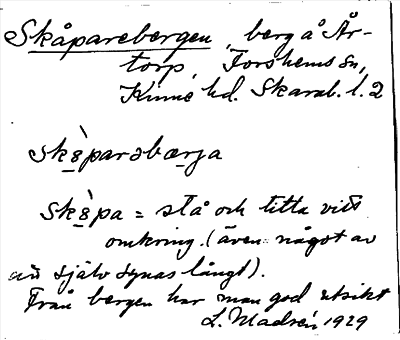 Skåparebergen, berg å År-
torp, Forshems sn,
Kinne hd. Skarab. l. 2
sk8̀parəbærja
sk8̀pa = stå och titta vida
omkring. (även: något av
att själv synas långt).
Från bergen har man god utsikt
L. Madsén 1929